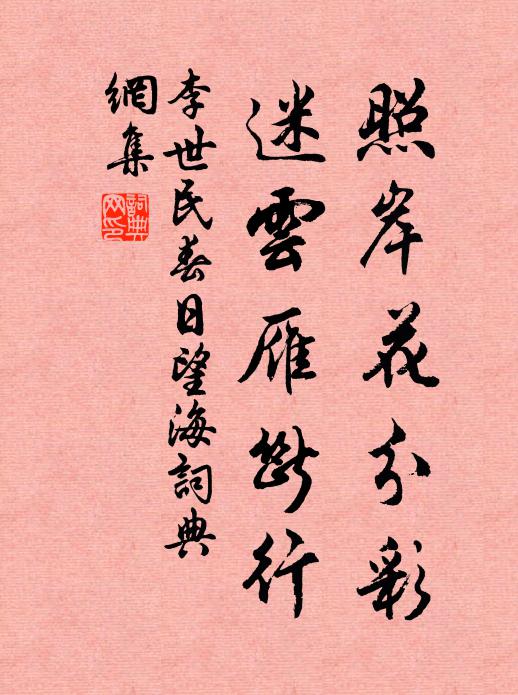 照岸花分彩
迷雲雁斷行
李世民春日望海詞典
網集
詞典網印